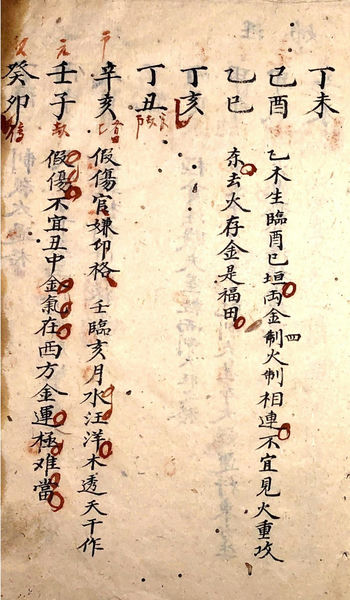 丁未
己酉
乙巳
丁亥
乙木生臨酉巳垣两金制火制相連不宜見火重攻
四
去火存金是福田
丁丑
辛亥
壬子
癸卯
假傷官嫌印格 壬臨亥月水汪洋木透天干作
假傷不宜丑中金氣在西方金運極难當